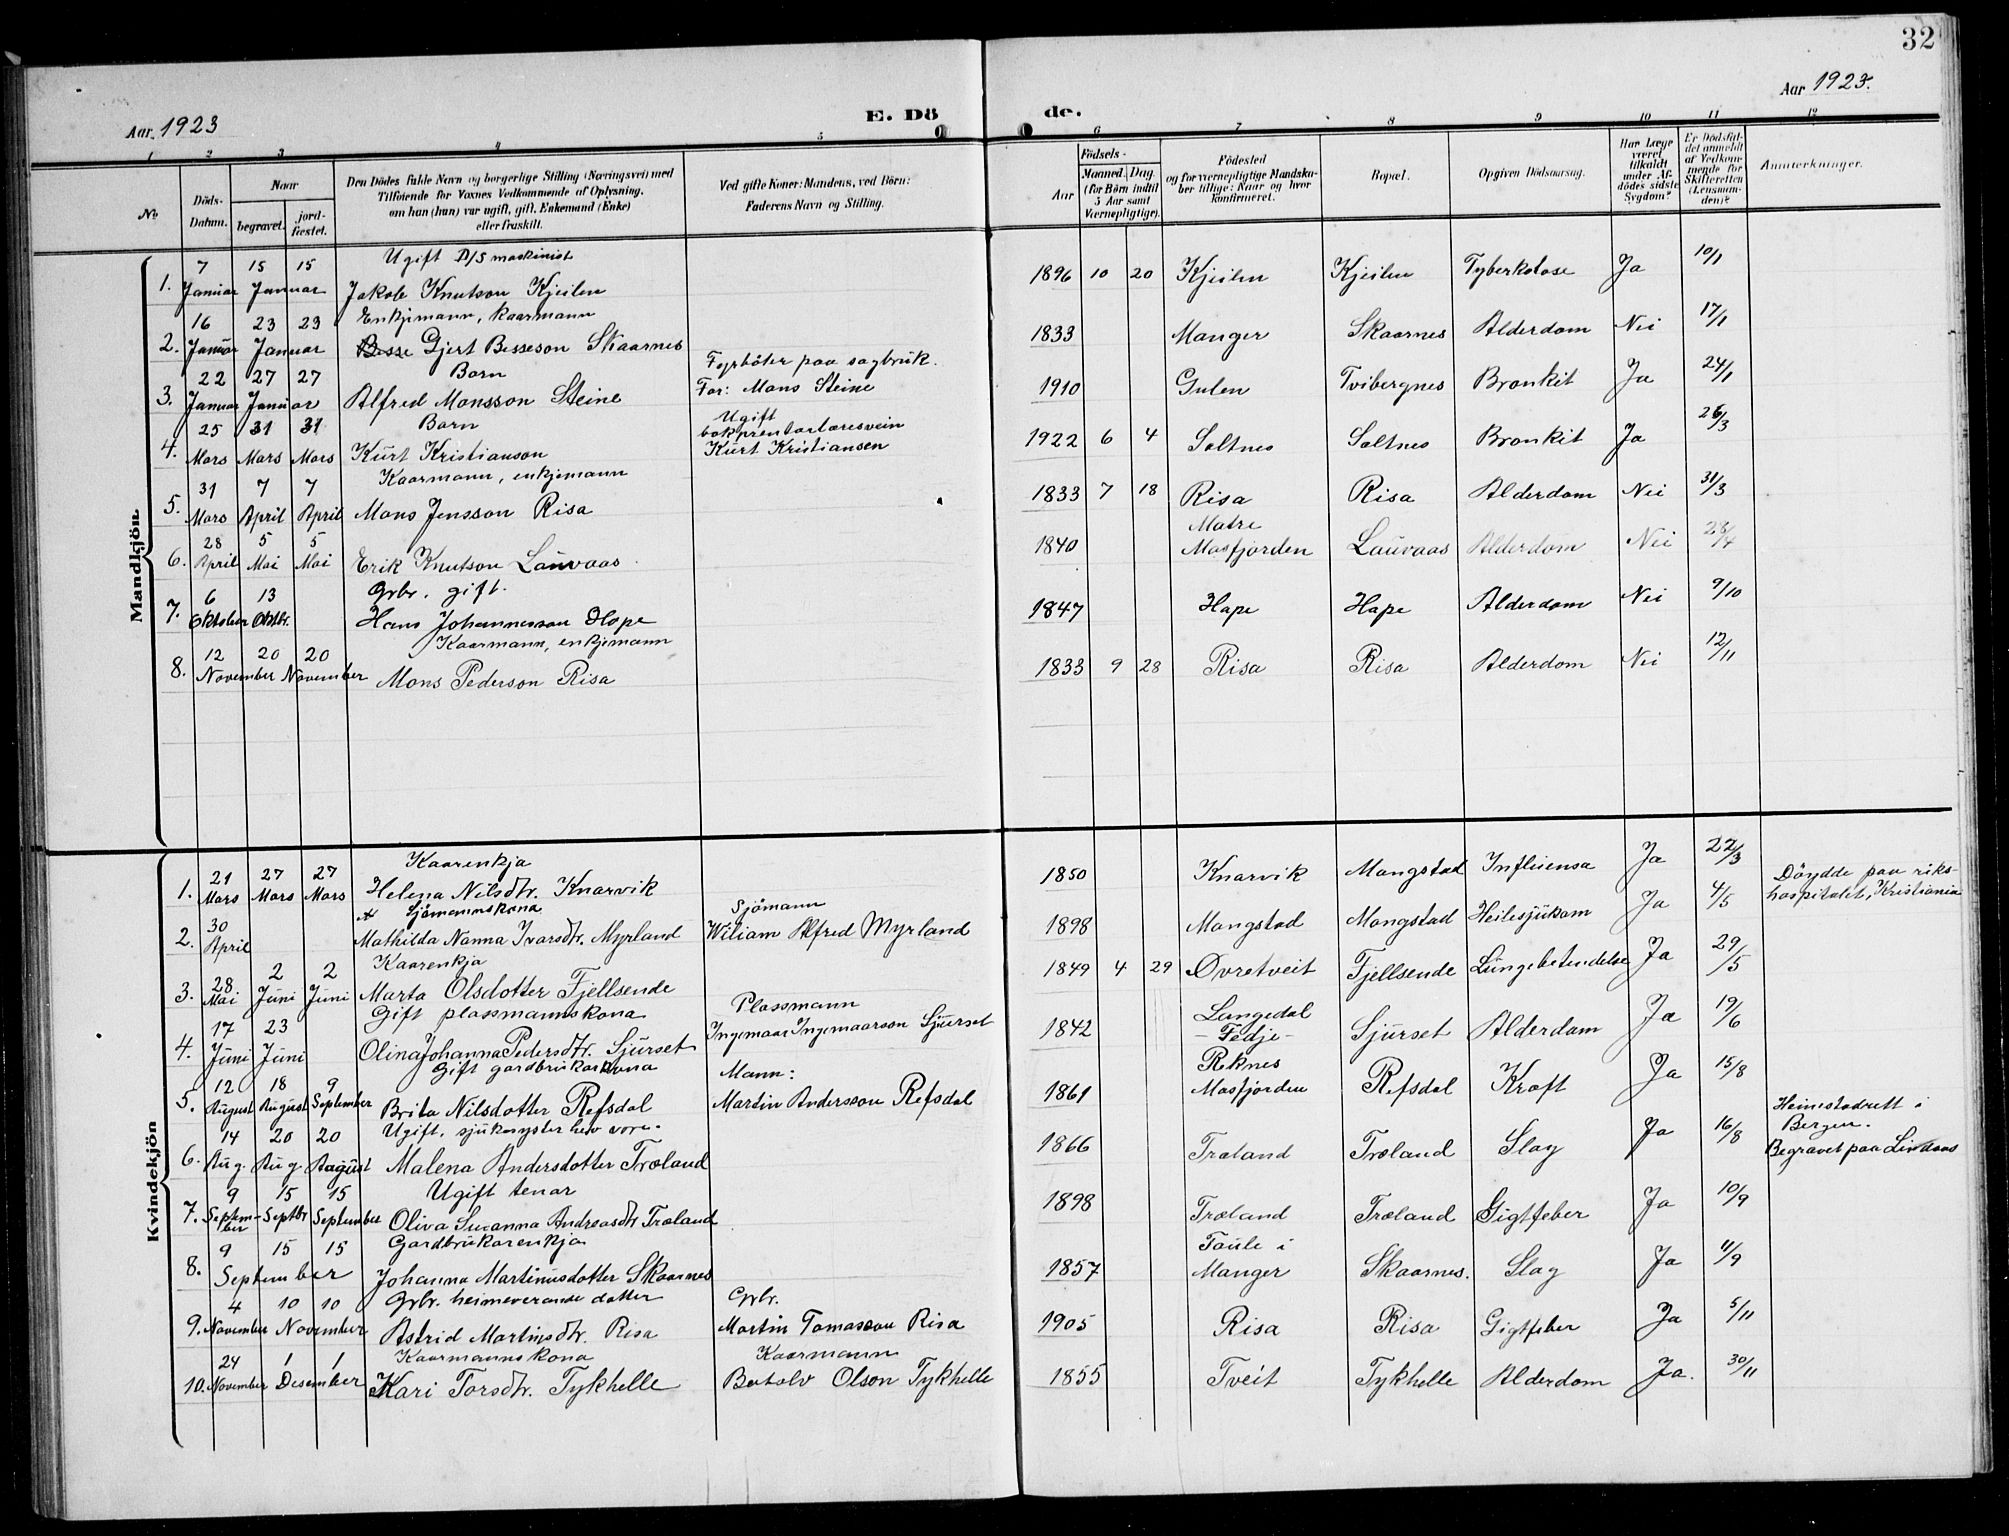 32
Aar 1923
E. Dö
de.
Aar 1923.
1 2 3 4 5 6 7 8 9 10 11 12
No
Döds-Datum.
Naar
begravet.
jord-fæstet.
Den Dödes fulde Navn og borgerlige Stilling (Næringsvei) med
Tilföiende for Voxnes Vedkommende af Oplysning,
om han (hun) var ugift, gift, Enkemand (Enke)
eller fraskilt.
Ved gifte Koner: Mandens, ved Börn:
Faderens Navn og Stilling.
Födsels-
Aar
Maaned. Dag.
(for Börn indtil
5 Aar samt
Værnepligtige).
Födested
og for værnepligtige Mandskaber tillige: Naar og hvor
konfirmeret.
Bopæl.
Opgiven Dödsaarsag.
Har Læge været tilkaldt under Afdödes sidste Sygdom?
Er Dödsfaldet anmeldt af Vedkommende for Skifteretten (Lensmanden)?
Anmærkninger.
Mandkjön
Ugift D/S maskinist
1. 7 Januar 15 15 Januar Jakob Knutson Kjeilen 1896 10 20 Kjeilen Kjeilen Tyberkolose Ja 10/1
Enkjemann, kaarmann
2. 16 Januar 23 23 Januar Gjert Besseson Skaarnes 1833 Manger Skaarnes Alderdom Nei 17/1
Born Fyrböter paa sagbruk.
3. 22 Januar 27 27 Januar Alfred Monsson Steine Far: Mons Steine 1910 Gulen Tvibergnes Bronkit Ja 24/1
Born Ugift
bokprentarlæresvein
4. 25 Mars 31 Mars 31 Mars Kurt Kristianson Kurt Kristiansen 1922 6 4 Soltnes Soltnes Bronkit Ja 26/3
Kaarmann, enkjemann
5. 31 Mars 7 April 7 April Mons Jensson Risa 1833 7 18 Risa Risa Alderdom Nei 31/3
Matre
6. 28 April 5 Mai 5 Mai Erik Knutson Lauvaas 1840 Masfjorden Lauvaas Alderdom Nei 28/4
Grbr. gift.
7. 6 Oktober 13 Oktbr. Hans Johannesson Hope 1847 Hope Hope Alderdom Nei 9/10
Kaarmann, enkjemann
8. 12 November 20 20 November Mons Pederson Risa 1833 9 28 Risa Risa Alderdom Nei 12/11
Kvindekjön
Kaarenkja
1. 21 Mars 27 Mars 27 Mars Helena Nilsdtr. Knarvik 1850 Knarvik Mongstad Influensa Ja 22/3
Döydde paa riks-
hospitalet, Kristiania
Sjömannskona Sjömann
2. 30 April Mathilda Nanna Ivarsdtr. Myrland Wiliam Alfred Myrland 1898 Mongstad Mongstad Heilesjukom Ja 4/5
Kaarenkja
3. 28 Mai 2 Juni 2 Juni Marta Olsdotter Fjellsende 1849 4 29 Øvretveit Fjellsende Lungebetendelse Ja 29/5
Gift plassmannskona Plassmann
Langedal
4. 17 Juni 23 Juni Olina Johanna Pedersdtr. Sjurset Ingemaar Ingemaarson Sjurset 1842 - Fedje - Sjurset Alderdom Ja 19/6
Gift gardbrukarkona Mann:
Reknes
5. 12 August 18 August 9 September Brita Nilsdotter Refsdal Martin Andersson Refsdal 1861 Masfjorden Refsdal Kræft Ja 15/8
Ugift, sjuksyster hev vore.
6. 14 Aug. 20 Aug 20 August Malena Andersdotter Træland 1866 Træland Træland Slag Ja 16/8
Heimstadrett i
Bergen.
Begravet paa Lindaas
Ugift tenar
7. 9 September 15 Septbr 15 September Oliva Susanna Andreasdtr Træland 1898 Træland Træland Gigtfeber Ja 10/9
Gardbrukarenkja
Toule i
8. 9 15 15 September Johanna Martinusdotter Skaarnes 1857 Manger Skaarnes. Slag Ja 11/9
Grbr. heimeverande dotter Grbr.
9. 4 November 10 10 November Astrid Martinsdtr. Risa Martin Tomasson Risa 1905 Risa Risa Gigtfeber Ja 5/11
Kaarmannskona Kaarmann
10. 24 November 1 1 Desember Kari Torsdtr. Tykhelle Botolv Olson Tykhelle 1855 Tveit Tykhelle Alderdom Ja. 30/11